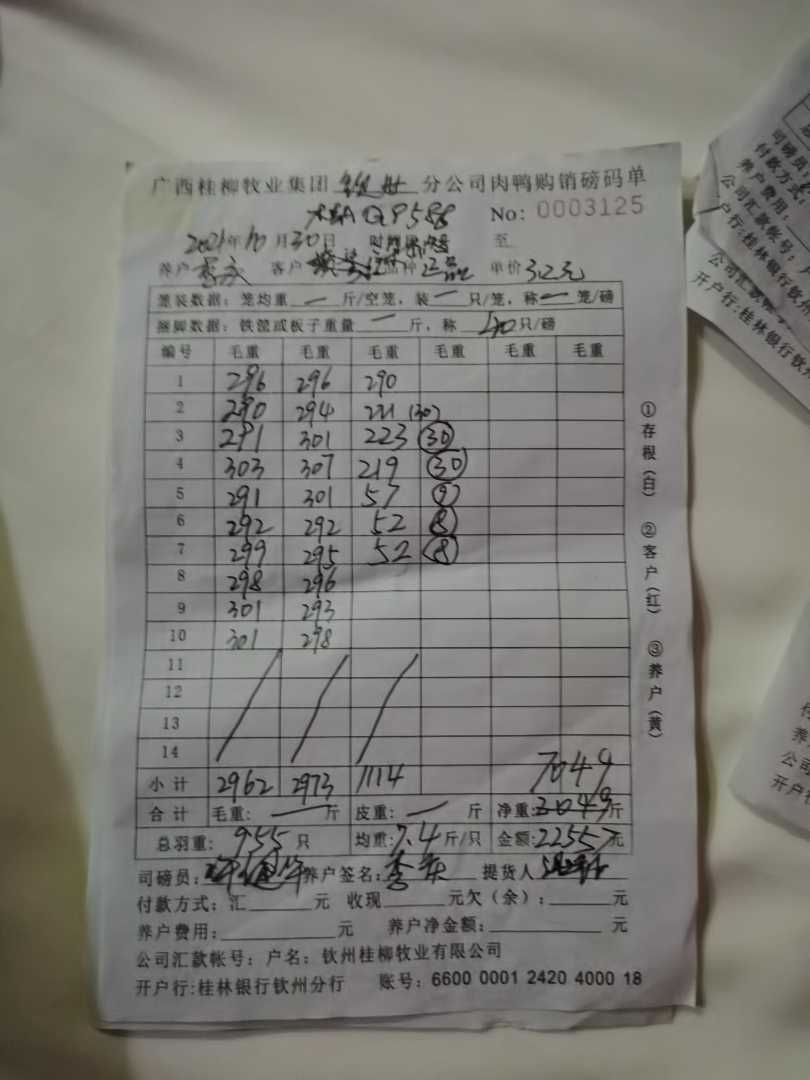 广西桂柳牧业集团 分公司肉鸭购销磅码单
QP588 No: 0003125
2021年10月30日 至
养户 客户 品种 正品 单价 3.2元
笼装数据: 笼均重 一 斤/空笼, 装 一 只/笼, 称 一 笼/磅
捆脚数据: 铁筐或板子重量 一 斤, 称 40 只/磅
编号 毛重 毛重 毛重 毛重 毛重 毛重
1 296 296 290
2 290 294 221 (30)
3 291 301 223 (30)
4 303 307 219 (30)
5 291 301 57 (9)
6 292 292 52 (8)
7 299 295 52 (8)
8 298 296
9 301 293
10 301 298
11
12
13
14
7049
小计 2962 2973 1114
合计 毛重: 一 斤 皮重: 一 斤 净重: 斤
总羽重: 955 只 均重: 7.4 斤/只 金额: 22557元
司磅员: 养户签名: 提货人
付款方式: 汇 元 收现 元欠(余): 元
养户费用: 元 养户净金额: 元
公司汇款帐号: 户名: 钦州桂柳牧业有限公司
开户行:桂林银行钦州分行 账号: 6600 0001 2420 4000 18
①存根(白) ②客户(红) ③养户(黄)
司磅员:
付款方式:
养户费用:
公司汇款帐号:
开户行:桂林银行钦
公司汇款帐
开户行:桂林银行钦
养户
公司
开户